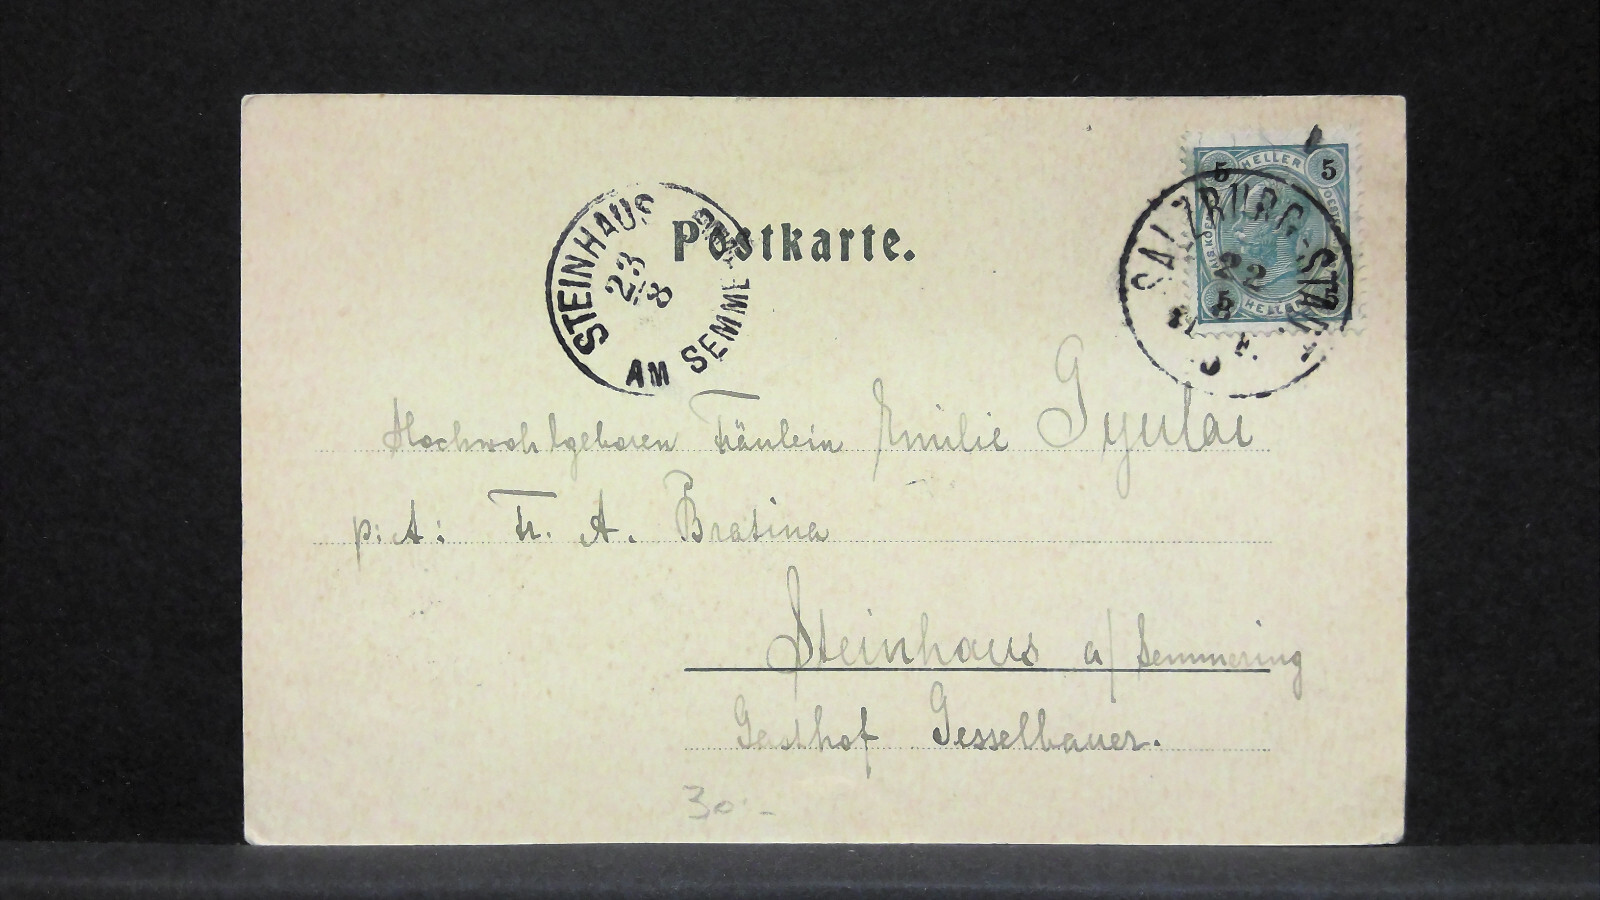 Postkarte.
STEINHAUS AM SEMMERING
23/8
5 HELLER 5
SALZBURG-STADT
22
8
Hochwohlgeboren Fräulein Emilie Gyulai
p: A: Fr. A. Bratina
Steinhaus a/ Semmering
Gasthof Gesselbauer.
30.-